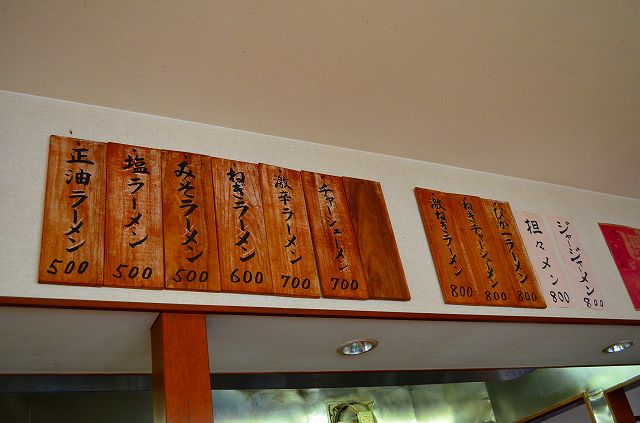 正油ラーメン 500
塩ラーメン 500
みそラーメン 500
ねぎラーメン 600
激辛ラーメン 700
チャーシューメン 700
激ねぎラーメン 800
ねぎチャーシューメン 800
ひかつラーメン 800
担々メン 800
ジャージャーメン 800